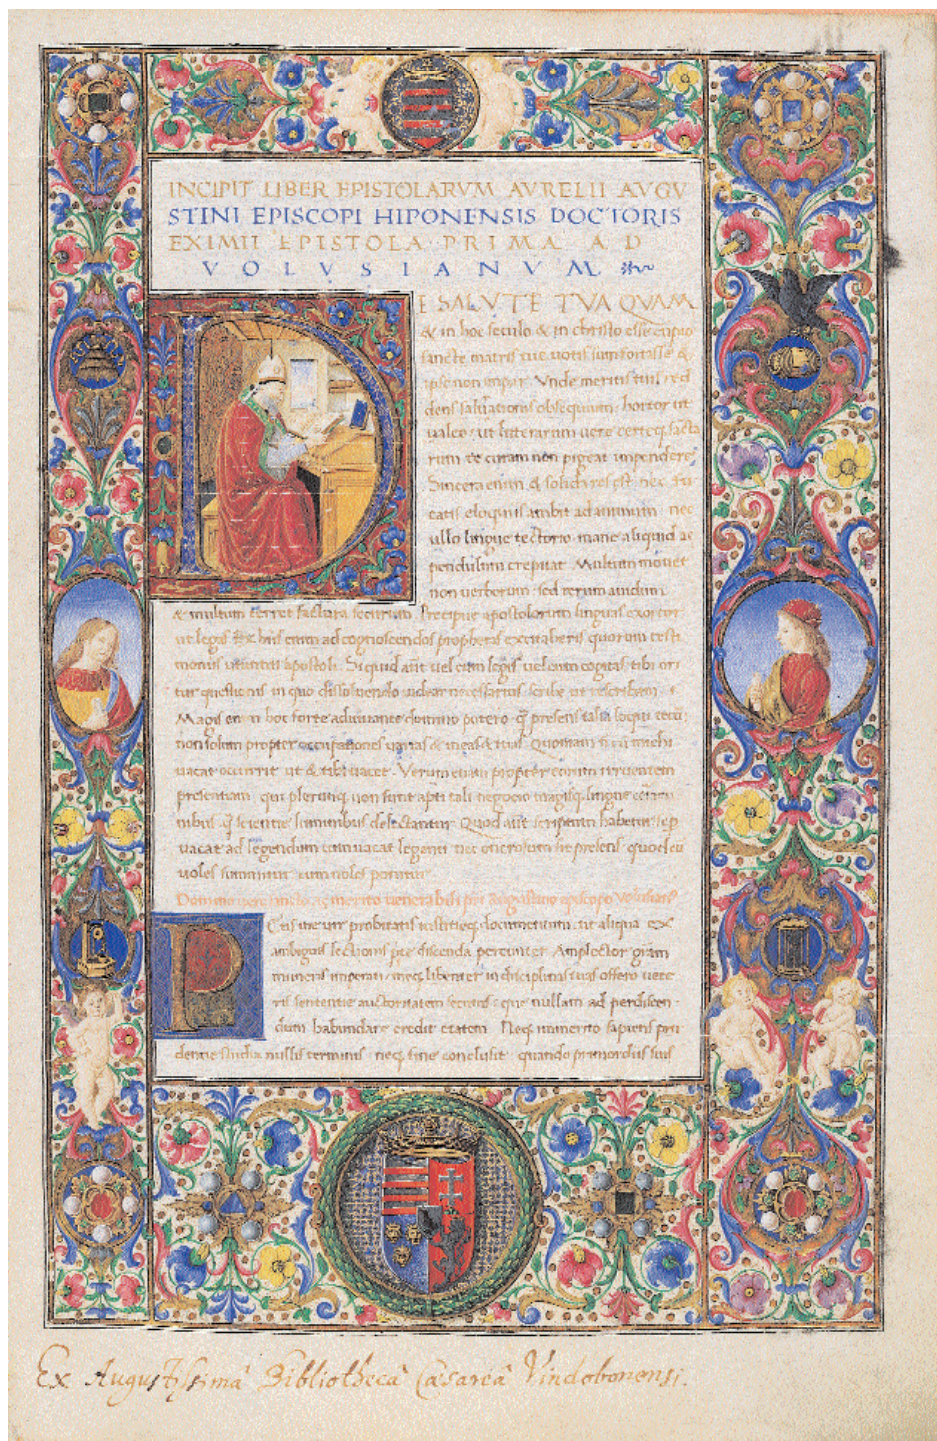 INCIPIT LIBER EPISTOLARVM AVRELII AVGV
STINI EPISCOPI HIPONENSIS DOCTORIS
EXIMII EPISTOLA PRIMA AD
VOLVSIANVM
E SALVTE TVA QVAM
& in hoc seculo & in christo esse cupio
sancte matris tue votis sum fortasse &
ipse non impar. Unde meritis tuis red
dens salutationis obsequium hortor ut
valeo ut litterarum
rum te curam non pigeat impendere
Sincera enim & solida res est nec fu
catis eloquiis ambit ad animum nec
ullo lingue tectorio inane aliquid ac
pendulum crepitat Multum movet
non verborum sed rerum avidum
& multum terret factura securum Precipue apostolorum linguas exortor
ut legis Ex his enim ad cognoscendos prophetas excitaberis quorum testi
moniis utuntur apostoli. Si quid aut vel cum legis vel cum cogitas tibi ori
tur questionis in quo dissolvendo videar necessarius scribe ut rescribam
Magis enim hoc forte adiuvante domino potero q̄ presens talia loqui
non solum propter occupationes varias & meas & tuas Quoniam
vacat occurrit ut & tibi vacet Verum etiam propter eorum irruentem
presentiam qui plerunq̄ non sunt apti tali negocio magisq̄ lingue certami
nibus q̄ scientie luminibus delectantur Quod aut scriptum habetur
vacat ad legendum cum vacat legenti nec onerosum fit presens quod cu
voles sumitur cum voles ponitur
Domino vere sancto ac merito venerabili pri Augustino episcopo Volusianus
Etis me vir probitatis iustitieq̄ documentum ut aliqua ex
ambigua lectionis pre discenda percunter Amplector gram
muneris imperati meq̄ libenter in disciplinas tuas offero vete
ris sententie auctoritatem secutus que nullam ad perdiscen
dum habundare credit etatem Neq̄ immerito sapiens pru
dentie studia nullis terminis neq̄ fine conclusit quando primordiis suis
Ex Augustissimâ Bibliothecâ Cæsareâ Vindobonensi.